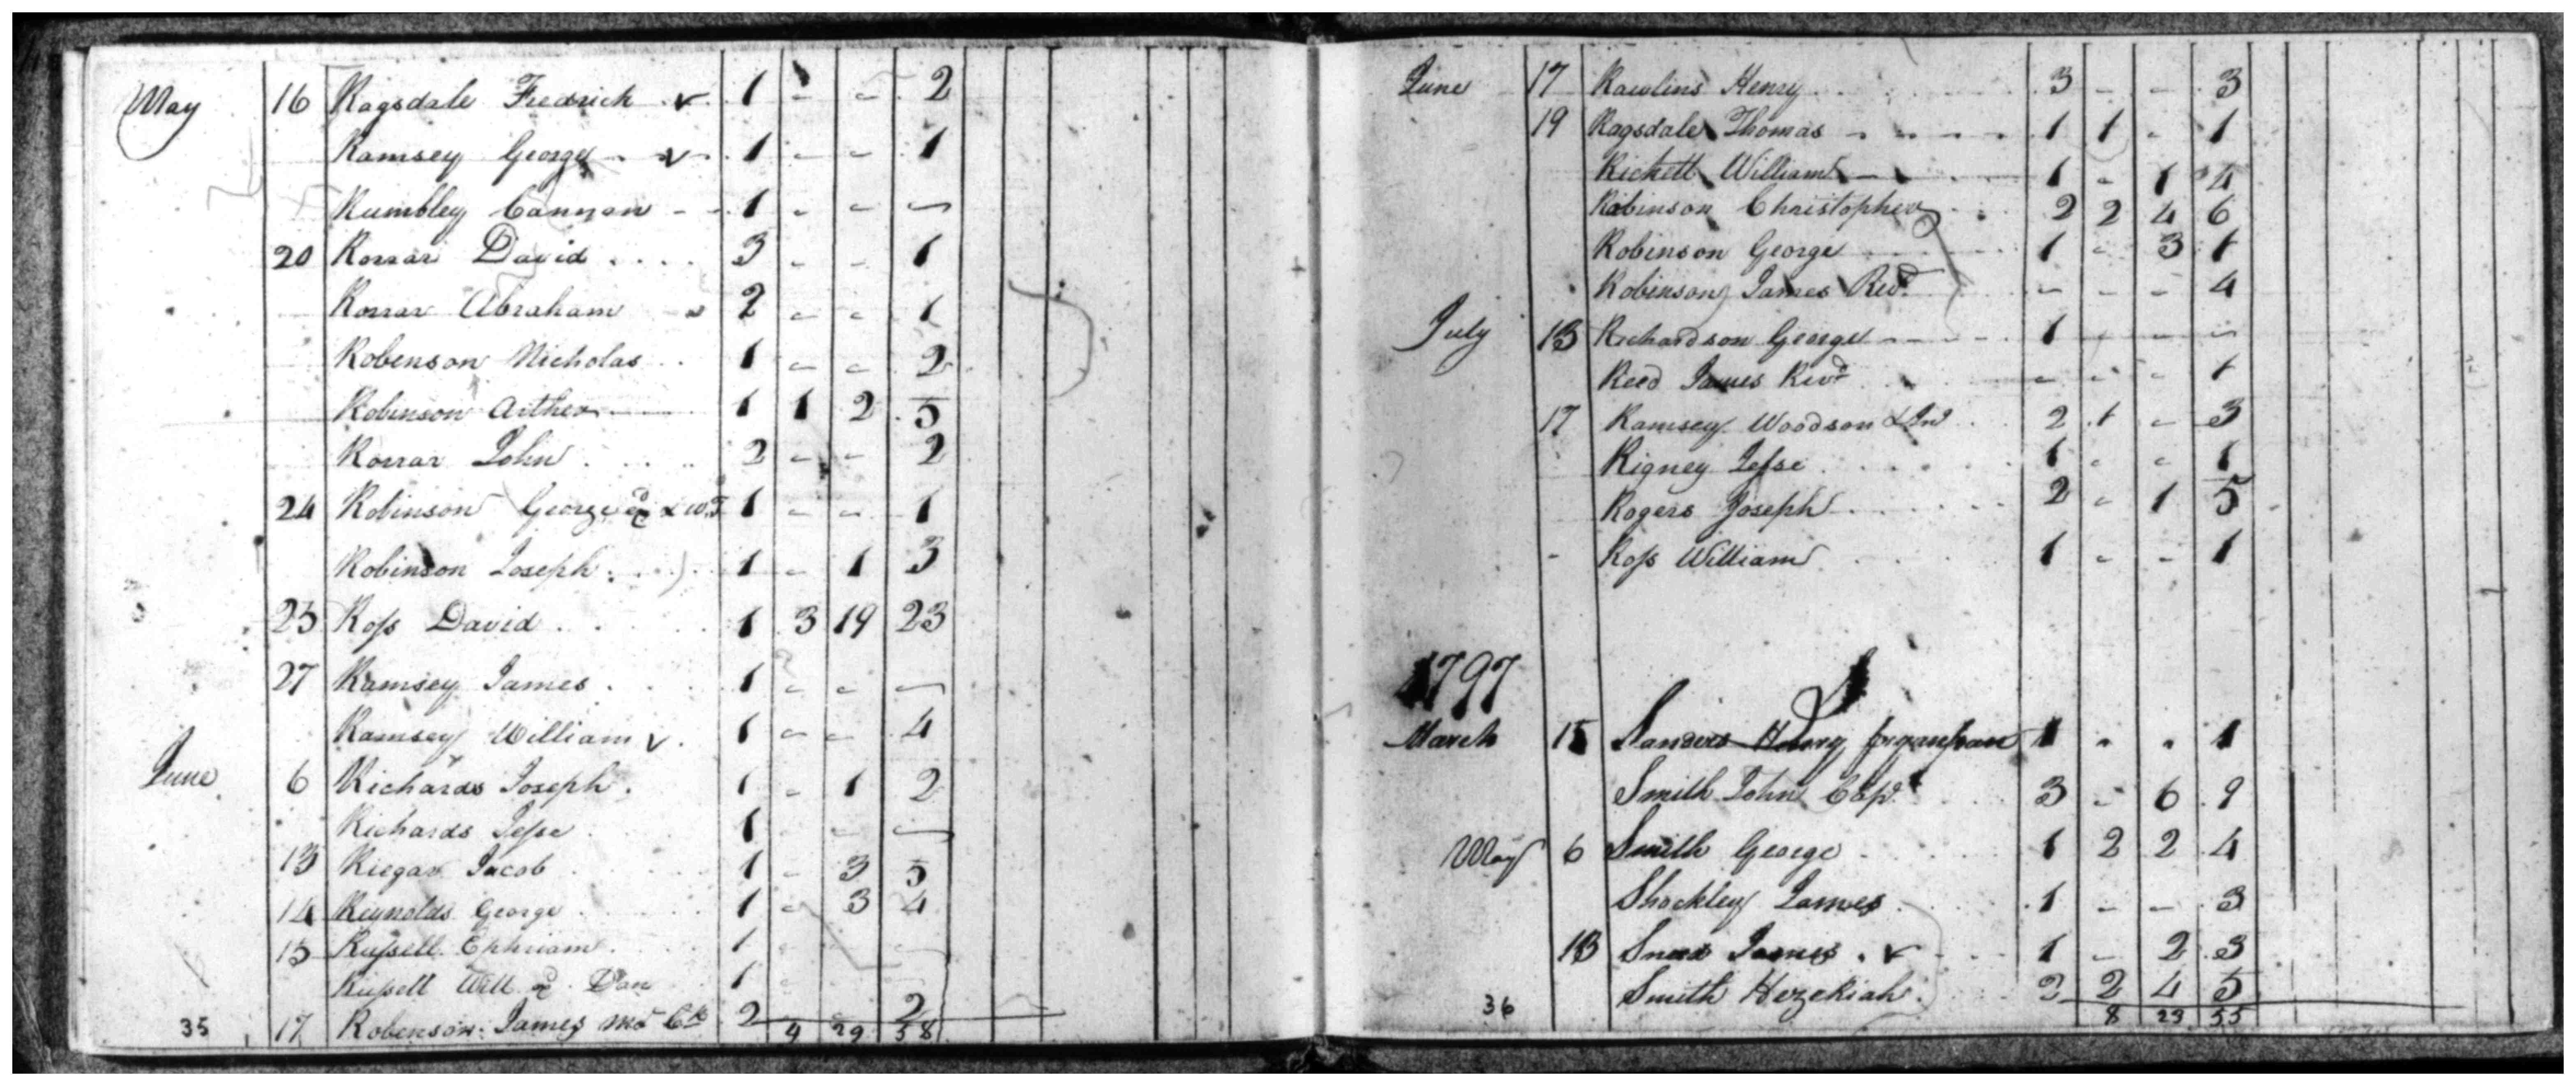 May 16 Ragsdale Fredrich v 1 - - 2
Ramsey George v 1 - - 1
Rumbley Cannon - - 1 - - -
20 Rorrar David .... 3 - - 1
Rorrar Abraham 2 - - 1
Robenson Nicholas .. 1 - - 2
Robinson Arther 1 1 2 5
Rorrar John .... 2 - - 2
24 Robinson George 1 - - 1
Robinson Joseph 1 - 1 3
25 Ross David .... 1 3 19 23
27 Ramsey James . 1 - - -
Ramsey William v . 1 - - 4
June 6 Richards Joseph . 1 - 1 2
Richards Jesse 1 - - -
13 Riegar Jacob 1 - 3 5
14 Reynolds George 1 - 3 4
15 Russell Ephriam . 1 - - -
Russell Will Dan 1 -
17 Robenson James 2 2
9 29 58
35
June 17 Rawlins Henry . 3 - - 3
19 Ragsdale Thomas - - - - 1 1 - 1
Rickett William 1 - 1 4
Robinson Christopher 2 2 4 6
Robinson George 1 - 3 1
Robinson James Revd. - - - 4
July 13 Richardson George - - - 1 - - -
Reed James Revd - - - 1
17 Ramsey Woodson 2 1 - 3
Rigney Jesse . 1 - - 1
Rogers Joseph 2 - 1 5
Ross William 1 - - 1
1797
S
March 15 Sanders Henry 1 - - 1
Smith John Capt 3 - 6 9
May 6 Smith George 1 2 2 4
Shockley James 1 - - 3
13 Snead James . v 1 - 2 3
Smith Hezekiah . 2 2 4 5
8 23 55
36